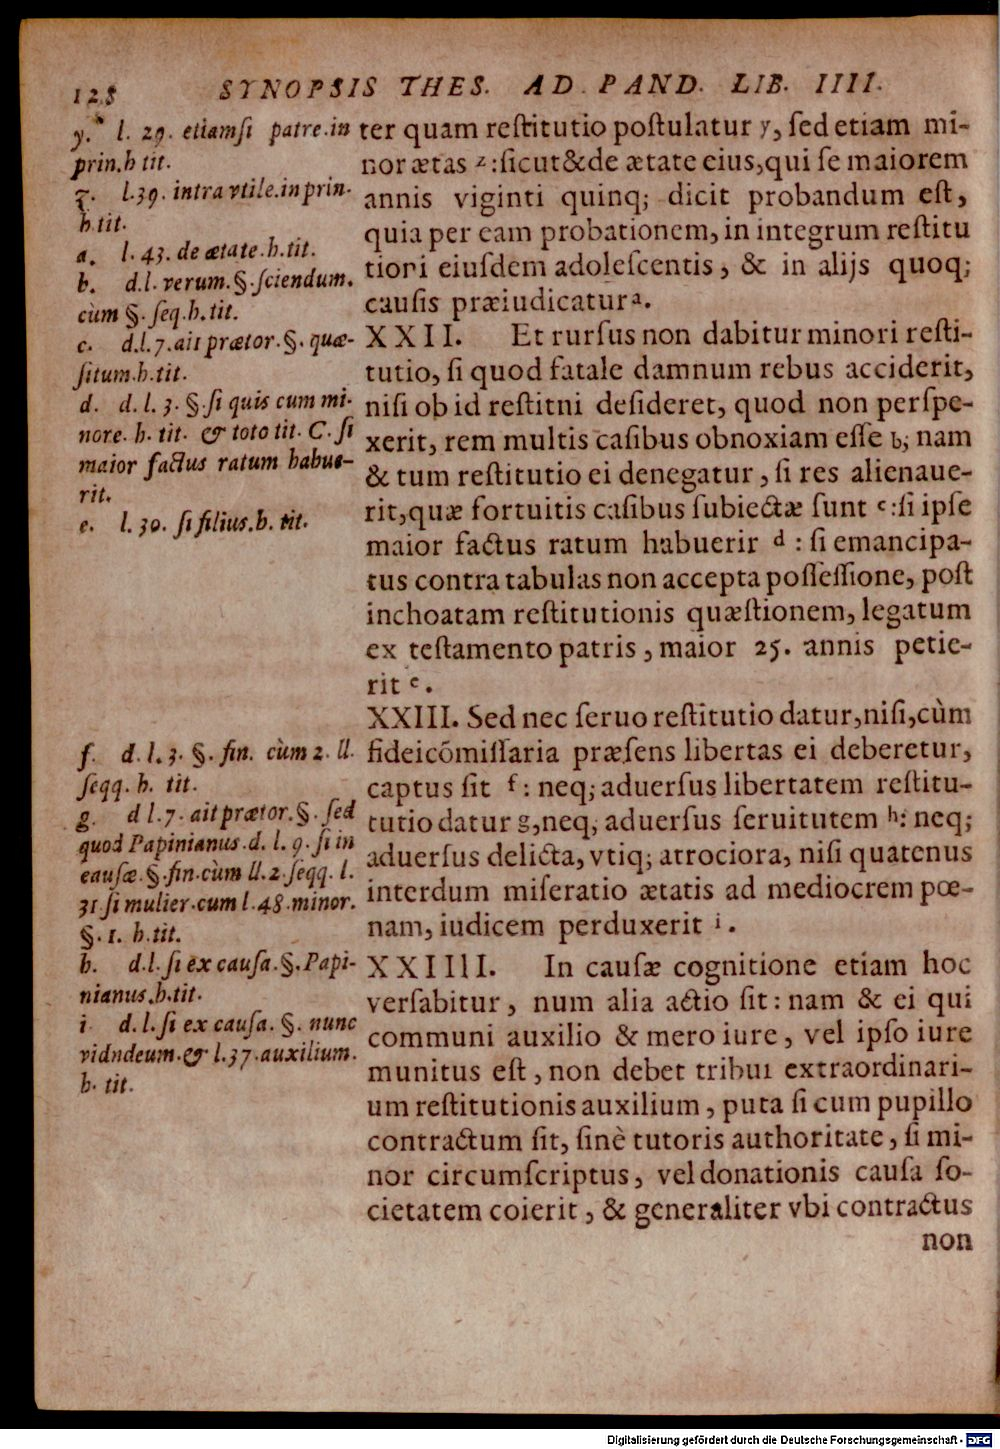 128 SYNOPSIS THES. AD. PAND. LIB. IIII.
y. l. 29. etiamſi patre.in
prin.h tit.
z. l.39. intra vtile.in prin.
h.tit.
a. l. 43. de ætate.h.tit.
b. d.l. rerum.§.ſciendum.
cùm §. ſeq.h.tit.
c. d.l.7.ait prætor.§. quæ-
ſitum.h.tit.
d. d. l. 3. §.ſi quis cum mi-
nore. h. tit. & toto tit. C. ſi
maior factus ratum habue-
rit.
e. l. 30. ſi filius.h. tit.
f. d. l. 3. §. fin. cùm 2. ll.
ſeqq. h. tit.
g. d l.7. ait prætor.§. ſed
quod Papinianus.d. l. 9. ſi in
eauſæ.§.fin.cùm ll.2.ſeqq. l.
31.ſi mulier.cum l.48.minor.
§. 1. h.tit.
h. d.l.ſi ex cauſa.§.Papi-
nianus.h.tit.
i d.l.ſi ex cauſa. §. nunc
vidndeum.& l.37.auxilium.
h. tit.
ter quam reſtitutio poſtulatur y, ſed etiam mi-
nor ætas z:ſicut&de ætate eius,qui ſe maiorem
annis viginti quinq; dicit probandum eſt,
quia per eam probationem, in integrum reſtitu
tiori eiuſdem adoleſcentis, & in alijs quoq;
cauſis præiudicatur a.
XXII. Et rurſus non dabitur minori reſti-
tutio, ſi quod fatale damnum rebus acciderit,
niſi ob id reſtitni deſideret, quod non perſpe-
xerit, rem multis caſibus obnoxiam eſſe b; nam
& tum reſtitutio ei denegatur, ſi res alienaue-
rit,quæ fortuitis caſibus ſubiectæ ſunt c:ſi ipſe
maior factus ratum habuerir d : ſi emancipa-
tus contra tabulas non accepta poſſeſſione, poſt
inchoatam reſtitutionis quæſtionem, legatum
ex teſtamento patris, maior 25. annis petie-
rit e.
XXIII. Sed nec ſeruo reſtitutio datur,niſi,cùm
fideicõmiſſaria præſens libertas ei deberetur,
captus ſit f: neq; aduerſus libertatem reſtitu-
tutio datur g,neq; aduerſus ſeruitutem h: neq;
aduerſus delicta, vtiq; atrociora, niſi quatenus
interdum miſeratio ætatis ad mediocrem pœ-
nam, iudicem perduxerit i.
XXIIII. In cauſæ cognitione etiam hoc
verſabitur, num alia actio ſit: nam & ei qui
communi auxilio & mero iure, vel ipſo iure
munitus eſt, non debet tribui extraordinari-
um reſtitutionis auxilium, puta ſi cum pupillo
contractum ſit, ſinè tutoris authoritate, ſi mi-
nor circumſcriptus, vel donationis cauſa ſo-
cietatem coierit, & generaliter vbi contractus
non
Digitalisierung gefördert durch die Deutsche Forschungsgemeinschaft - DFG